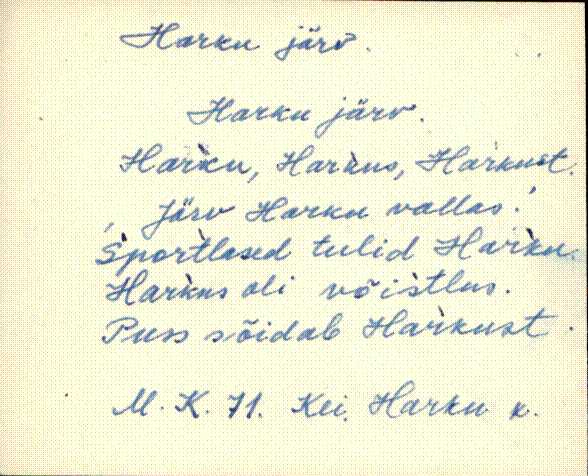 Harku järv.
Harku järv.
Harku, Harkus, Harkust.
'Järv Harku vallas.'
Sportlased tulid Harku.
Harkus oli võistlus.
Puss sõidab Harkust.
M. K. 71. Kei. Harku k.